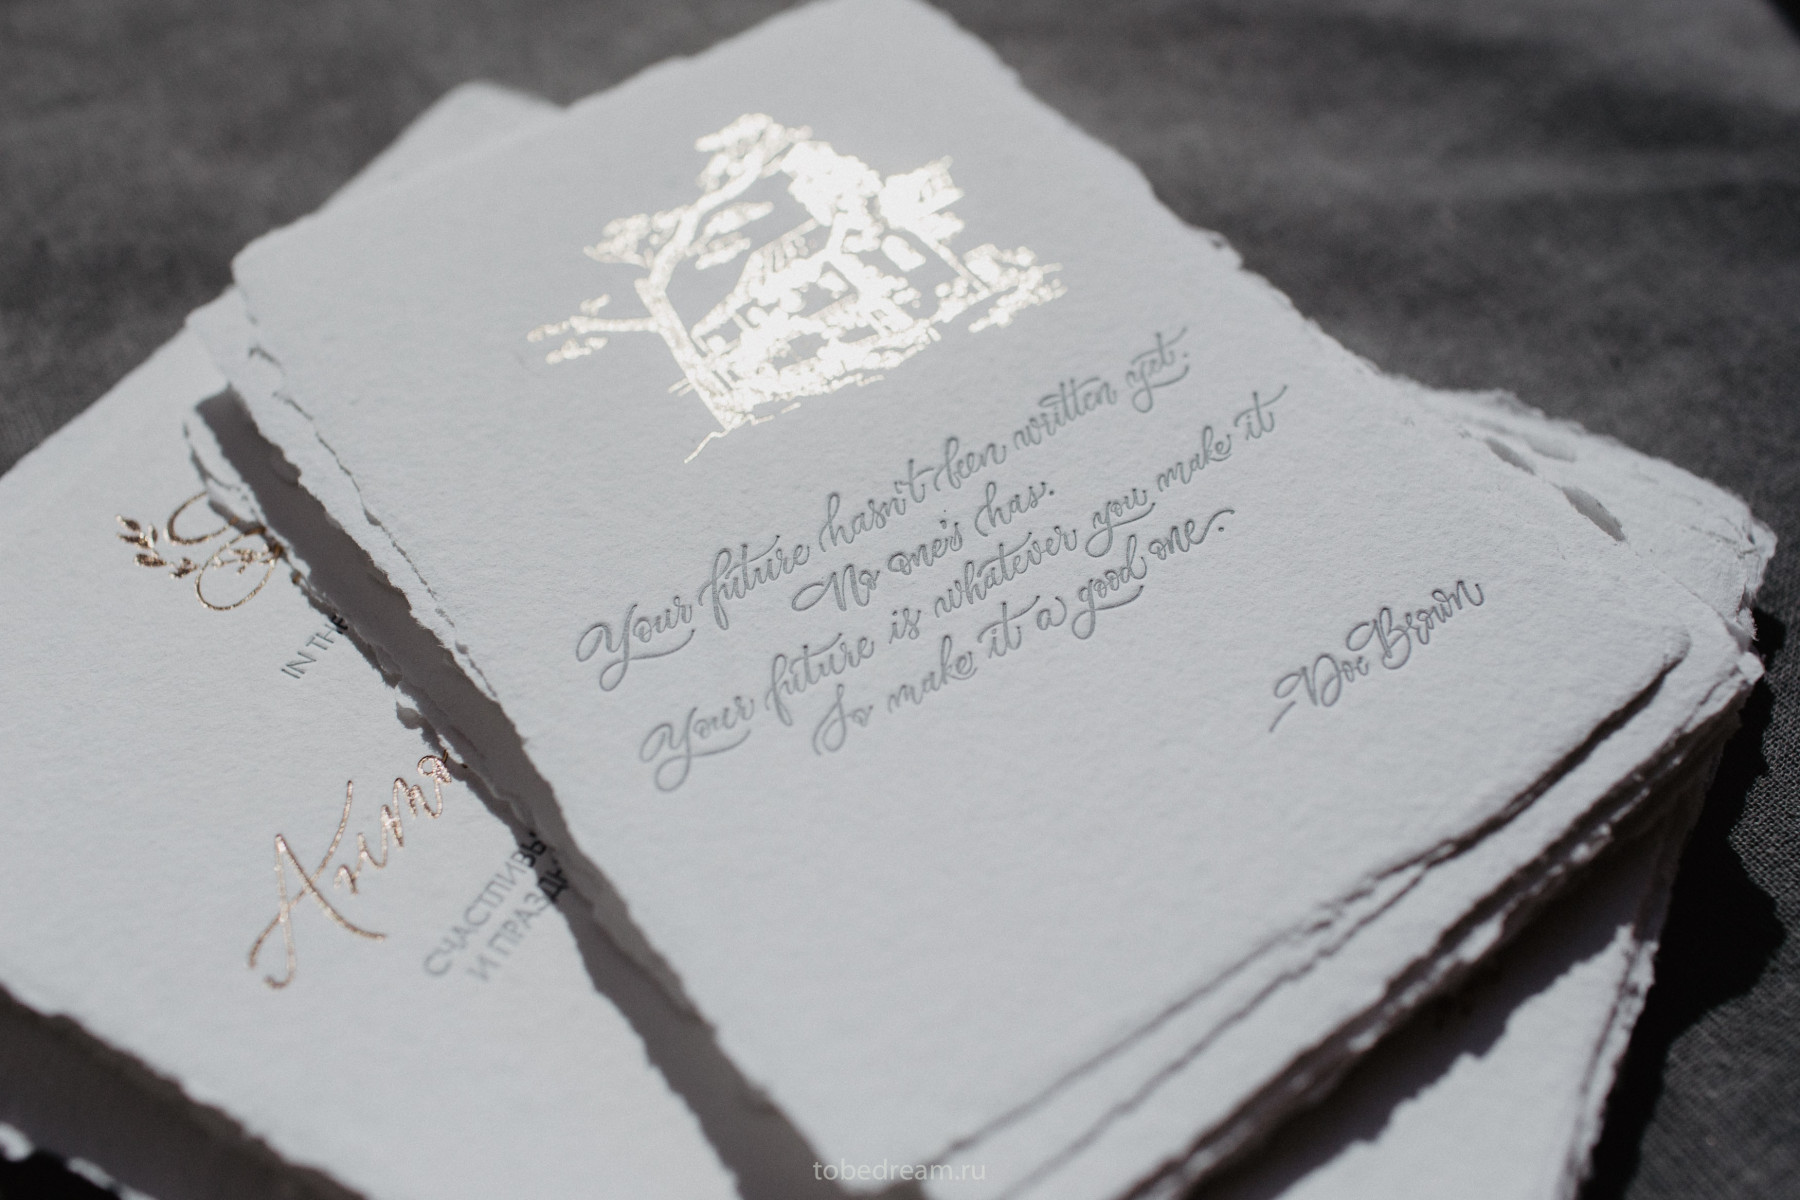 Your future hasn't been written yet.
No one's has.
Your future is whatever you make it
So make it a good one.
Doc Brown
IN THE
СЧАСТЛИВЫ
И ПРАЗД
tobedream.ru